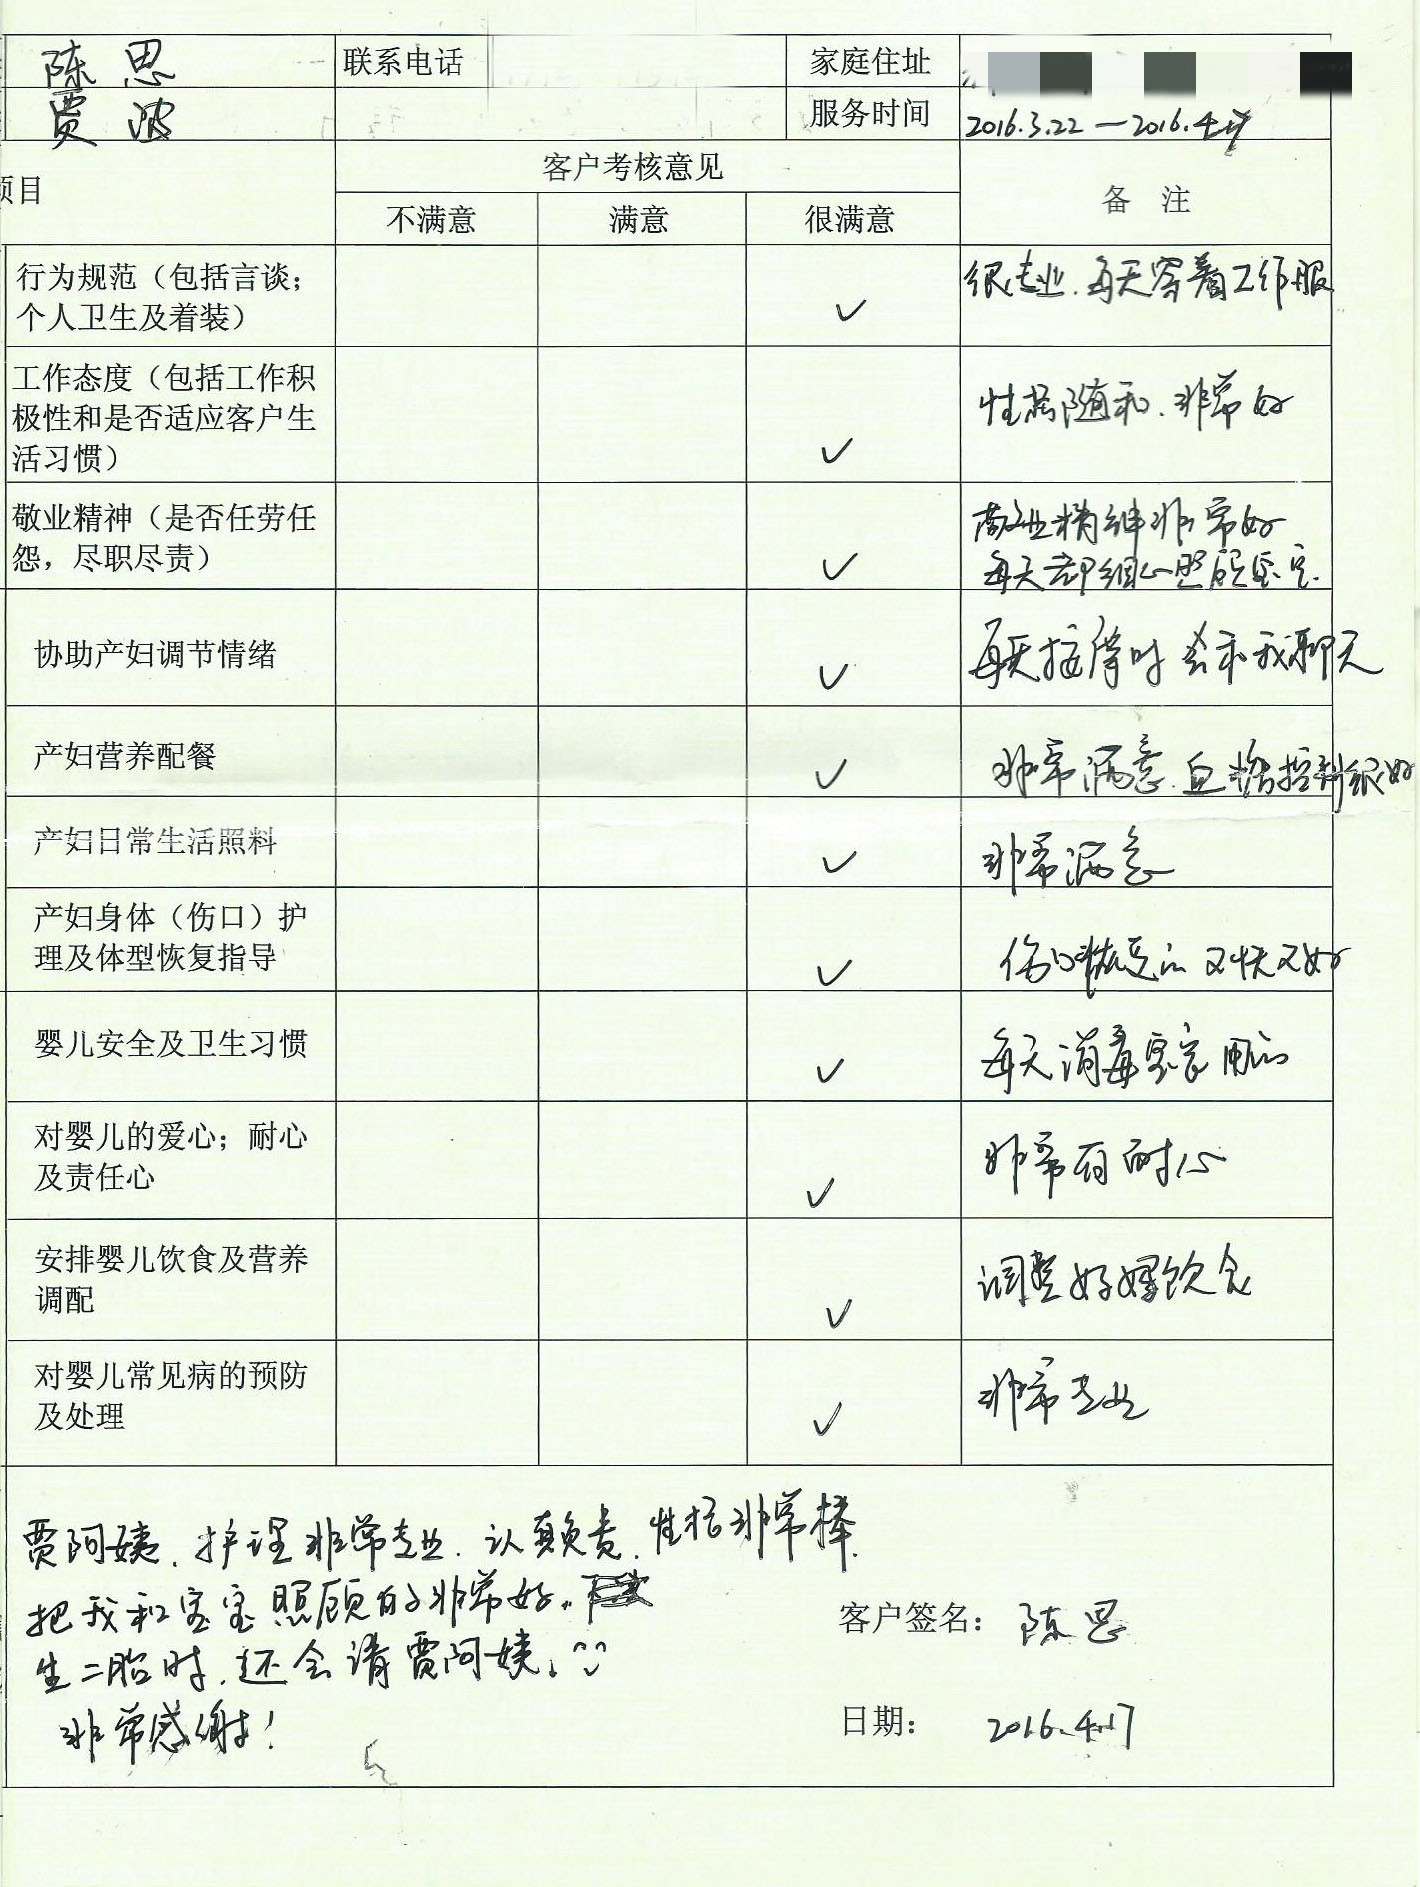 陈思 联系电话 家庭住址
贾波 服务时间 2016.3.22—2016.4.17
项目 客户考核意见 备 注
不满意 满意 很满意
行为规范（包括言谈；
个人卫生及着装） ✓ 很专业.每天穿着工作服
工作态度（包括工作积
极性和是否适应客户生
活习惯） ✓ 性格随和.非常好
敬业精神（是否任劳任
怨，尽职尽责） ✓ 敬业精神非常好
每天都细心照顾宝宝.
协助产妇调节情绪 ✓ 每天按摩时会和我聊天
产妇营养配餐 ✓ 非常满意.血糖控制很好
产妇日常生活照料 ✓ 非常满意
产妇身体（伤口）护
理及体型恢复指导 ✓ 伤口恢复的又快又好
婴儿安全及卫生习惯 ✓ 每天消毒宝宝用的
对婴儿的爱心；耐心
及责任心 ✓ 非常有耐心
安排婴儿饮食及营养
调配 ✓ 调整好饮食
对婴儿常见病的预防
及处理 ✓ 非常专业
贾阿姨.护理非常专业.认真负责.性格非常棒.
把我和宝宝照顾的非常好.
生二胎时.还会请贾阿姨.
非常感谢！
客户签名：陈思
日期：2016.4.17